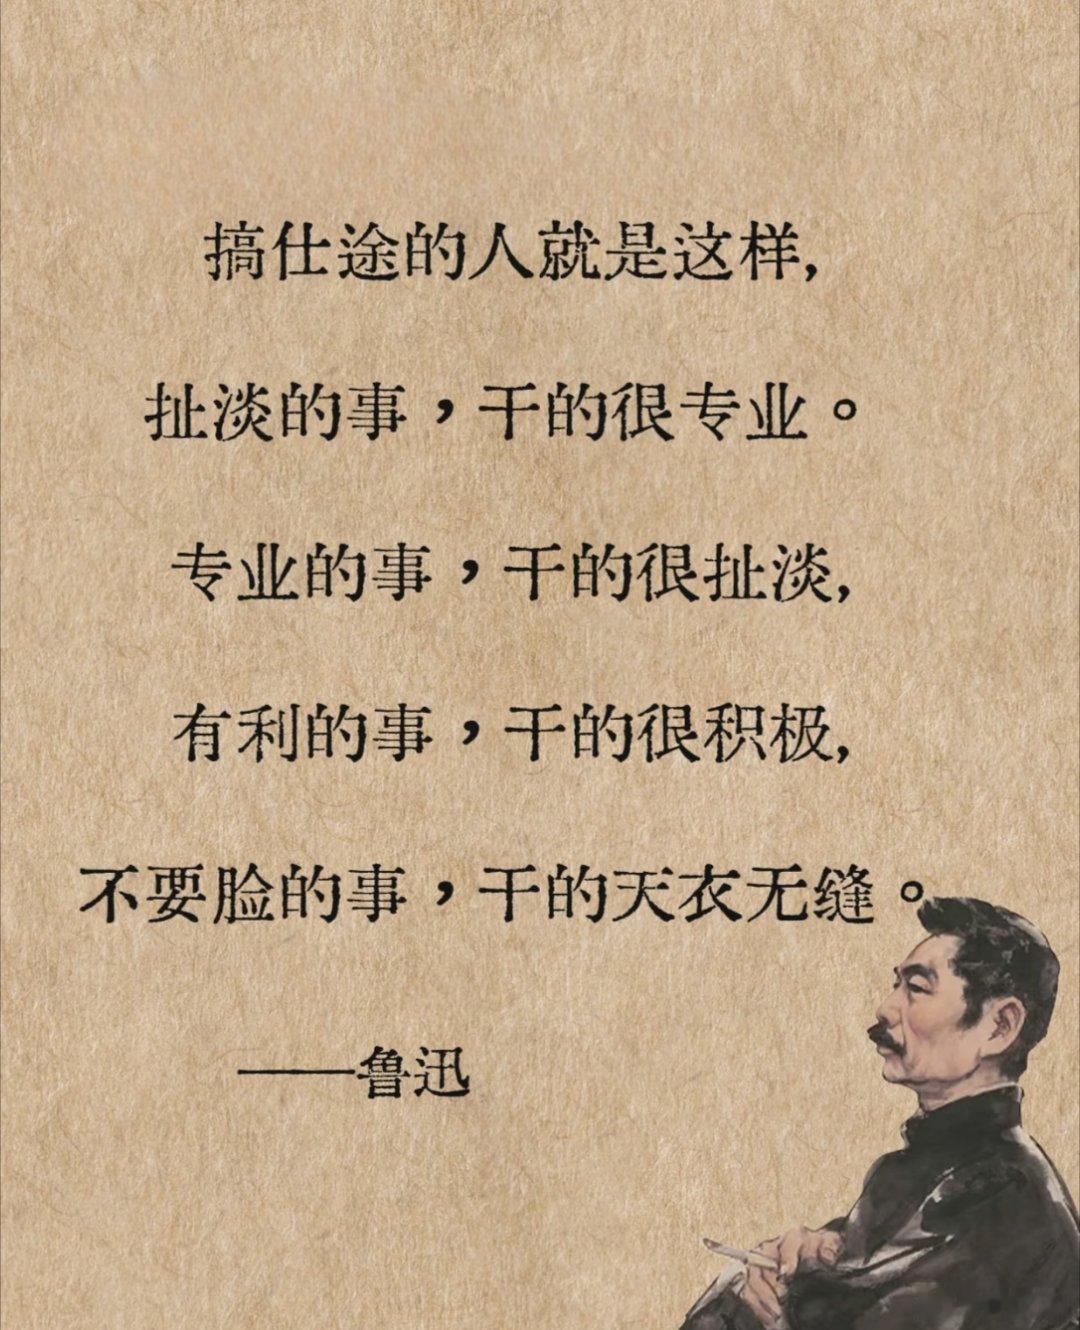 搞仕途的人就是这样,
扯淡的事，干的很专业。
专业的事，干的很扯淡,
有利的事，干的很积极,
不要脸的事，干的天衣无缝。
——鲁迅